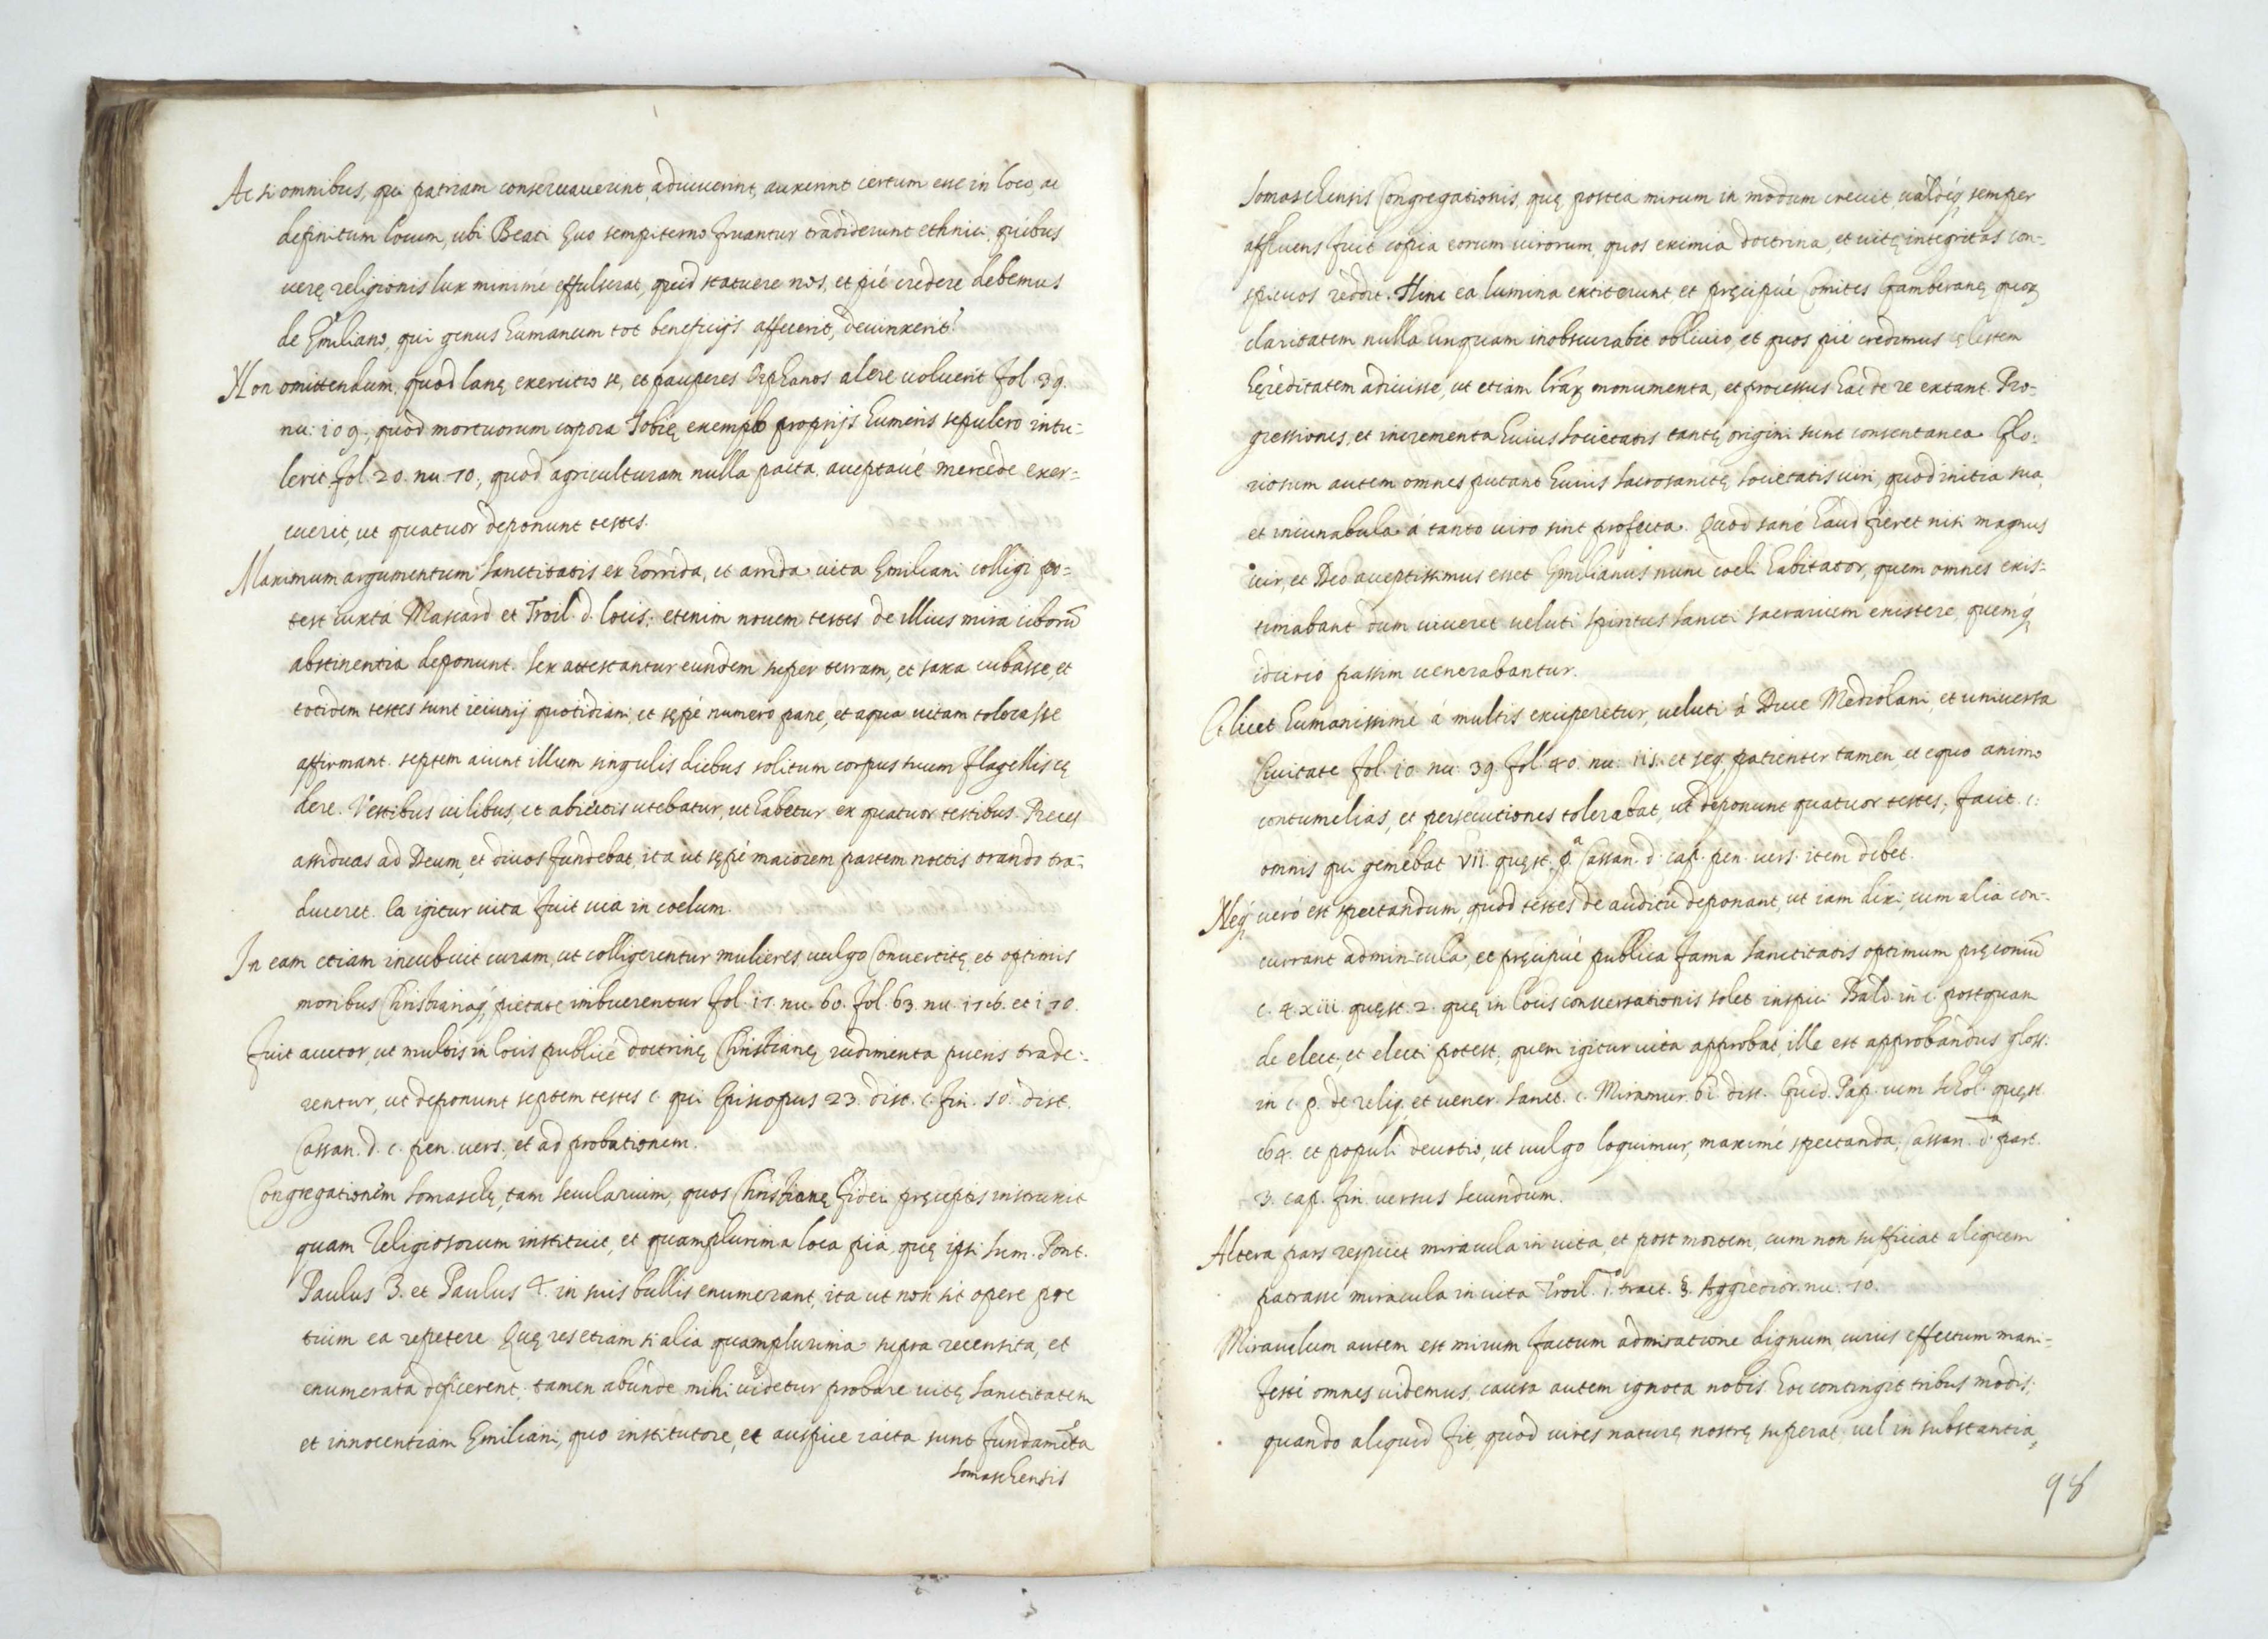 Ac si omnibus, qui patriam conseruauerint, adiuuerint, auxerint certum esse in loco, ac
definitum locum, ubi Beati ęuo sempiterno fruantur tradiderunt ethnici, quibus
uerę religionis lux minimé effulserat, quid statuere nos, et pié credere debemus
de Emiliano, qui genus humanum tot beneficijs affecerit, deuinxerit?
Non omittendum, quod lanę exercitio se, et pauperes Orphanos alere uoluerit fol. 39.
nu. 109., quòd mortuorum corpora Tobię exemplo proprijs humeris sepulcro intu-
lerit fol. 20. nu. 70., quod agriculturam nulla pacta, acceptaué mercede exer-
cuerit, ut quatuor deponunt testes.
Maximum argumentum sanctitatis ex horrida, et arrida uita Emiliani colligi po-
test iuxta Mascard et Troil. d. locis; etenim nouem testes de illius mira ciborū
abstinentia deponunt. Sex attestantur eundem super terram, et saxa cubasse, et
totidem testes sunt ieiunij quotidiani, et sępé numero pane, et aqua uitam tolerasse
affirmant. septem aiunt illum singulis diebus solitum corpus suum flagellis cę
dere. Vestibus uilibus, et abiectis utebatur, ut habetur ex quatuor testibus. Preces
assiduas ad Deum, et diuos fundebat, ita ut sępé maiorem partem noctis orando tra-
duceret. Ea igitur uita fuit uia in coelum.
In eam etiam incubuit curam, ut colligerentur mulieres uulgo Conuertitę, et optimis
moribus Christianaq, pietate imbuerentur fol. 17. nu. 60. fol. 63. nu. et 170.
Fuit auctor, ut multis in locis publicé doctrinę Christianę rudimenta pueris trade-
rentur, ut deponunt septem testes c. qui Episcopus 23. dist. c. fin. 50. dist.
Cassan. d. c. pen. uers. et ad probationem.
Congregationem Somaschę, tam secularium, quos Christianę Fidei pręceptis instruxit
quam Religiosorum instituit, et quamplurima loca pia, quę ipsi Sum. Pont.
Paulus 3. et Paulus 4. in suis bullis enumerant, ita ut non sit opere pre
tium ea repetere. Quę res etiam si alia quamplurima supra recensita, et
enumerata deficerent; tamen abunde mihi uidetur probare uitę sanctitatem
et innocentiam Emiliani, quo institutore, et auspice iacta sunt fundamēta
Somaschensis
Somaschensis Congregationis, quę postea mirum in modum creuit, ualdéq, semper
affluens fuit copia eorum uirorum, quos eximia doctrina, et uitę integritas con-
spicuos reddit. Hinc ea lumina extiterunt, et pręcipué Comites Gambaranę, quoꝝ
claritatem nulla unquam inobscurabit obliuio, et quos pié credimus cęlestem
hęreditatem adiuisse, ut etiam lrāꝝ monumenta, et processus hac de re extant. Pro-
gressiones, et incrementa huius societatis tantę origini sunt consentanea. Glo-
riosum autem omnes putant huius sacrosanctę societatis uiri, quod initia sua,
et incunabula á tanto uiro sint profecta. Quod sané haud fieret nisi magnus
uir, et Deo acceptissimus esset Emilianus nunc coeli habitator, quem omnes exis-
timabant dum uiueret ueluti spiritus sancti sacrarium existere, quemq,
idcirco passim uenerabantur.
Et licet humanissimé á multis exciperetur, ueluti á Duce Mediolani, et uniuersa
Ciuitate fol. 10. nu. 39. fol. 40. nu. 115. et seq. patienter tamen, et equo animo
contumelias, et persecutiones tolerabat, ut deponunt quatuor testes; facit c.
omnis qui gemebat VII. quęst. pa Cassan. d. cap. pen. uers. item debet.
Neq, ueró est spectandum, quòd testes de auditu deponant, ut iam dixi, cum alia con-
currant adminicula, et pręcipué publica fama sanctitatis optimum pręconiū
c. 4. xiii. quęst. 2. quę in locis conuersationis solet inspici Bald. in c. postquam
de elect., et electi potest, quem igitur uita approbat, ille est approbandus gloss.
in c. p. de relig. et uener. sanct. c. Miramur. 61. dist. Guid. Pap. cum schol. quęst.
64. et populi deuotio, ut uulgo loquimur, maximé spectanda, Cassan. da part.
3. cap. fin. uersus secundum.
Altera pars respicit miracula in uita, et post mortem, cum non sufficiat aliquem
patrasse miracula in uita Troil. do tract. §. Aggredior. nu. 10.
Miraculum autem est mirum factum admiratione dignum, cuius effectum mani-
festé omnes uidemus, causa autem ignota nobis. hoc contingit tribus modis;
quando aliquid fit, quod uires naturę nostrę superat, uel in substantia,
98